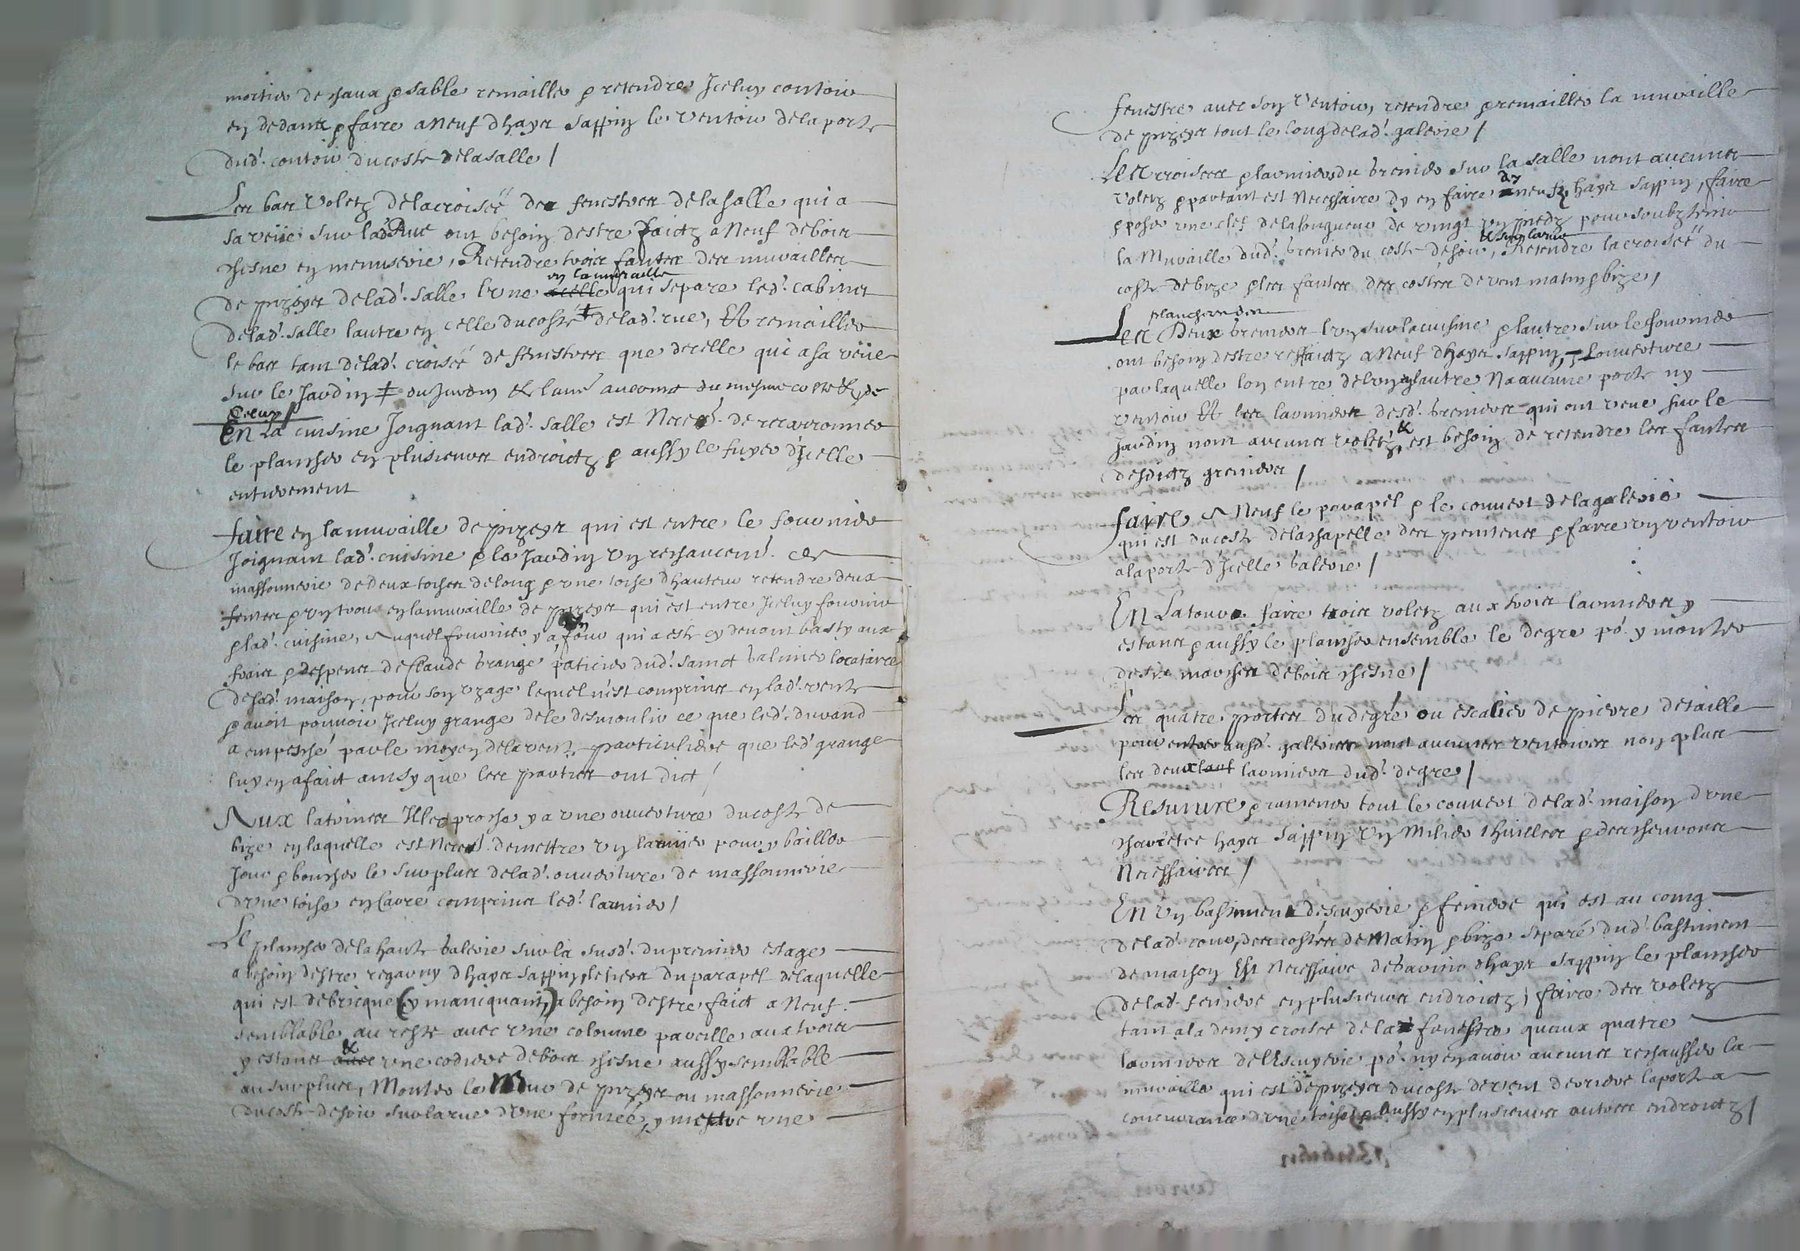 mortier de chaux & sable remailler & retendre Iceluy contoir
en dedans & faire a neuf d'hays sappin le ventoir de la porte
dud. contoir du costé de la salle /
Les bas voletz de la croiseé des fenestres de la salle qui a
sa veüe sur lad. Rue ont besoin destre faictz a neuf de bois
chesne en menuserie, Retendre trois fantes des murailles
en la muraille
de pizeys de lad. salle lune qui separe led. cabinet
de lad. salle lautre en celle du costé de lad. rue, Et remailler
le bas tant de lad. croiseé de fenestres que de celle qui a sa veüe
sur le Jardin du Jardin & lune au coing du mesme costé
Celuy
En La cuisine Joignant lad. salle est de recarronner
le plancher en plusieurs endroictz & aussy le fuyer d'Icelle
entierement
Faire en la muraille de pizeys qui est entre le fournier
Joignant lad. cuisine & le Jardin un rehaucem. de
massonnerie de deux toises de long & une toise d'hauteur retendre deux
fentes & un trou en la muraille de pizeys qui est entre Iceluy fournier
& lad. cuisine, Auquel fournier y a un four qui a esté cy devant basty aux
frais & despens de Claude Grange paticier dud. Sainct Galmier locataire
de lad. maison, pour son uzage lequel n'est comprins en lad. vente
& avoir pouvoir Iceluy Grange de le desmoulir ce que led. Durand
a empesché par le moyen de la vente particuliere que led. Grange
luy en a faict ainsy que les parties ont dict /
Aux latrines Illec proche y a une ouverture du costé de
bize en laquelle est de mettre un larmier pour y bailler
Jour & boucher le surplus de lad. ouverture de massonnerie
d'une toise en carre comprins led. larmier /
Le plancher de la haute galerie sur la susd. du premier estage
a besoin destre regarny d'hays sappin, le tiers du parapel de laquelle
qui est de bricque (y manicquant,) a besoin destre faict a neuf
semblable au reste avec une colonne pareille aux trois
y estans & une codiere de bois chesne aussy semblable
au surplus, Monter le Mur de pizeys ou massonnerie
du costé de soir sur la rue d'une formeé, y mettre une
fenestre avec son ventoir, retendre & remailler la muraille
de pizeys tout le long de lad. galerie /
Les croisees & larmiers du grenier sur la salle nont aucuns
voletz & partant est necessaire dy en faire de neufz hays sappin, faire
& poser une clef de la longueur de vingt un piedz pour soubztenir
& sur la rue
la Muraille dud. grenier du costé de soir, Retendre la croiseé du
costé de bize & les fantes des costés de vent matin & bize /
planchers des
Les Deux greniers lun sur la cuisine & lautre sur le fournier
ont besoin destre reffaictz a neuf d'hays sappin, Louverture
par laquelle lon entre de lun en lautre Na aucune porte ny
ventoir Et les larmiers desd. greniers qui ont veue sur le
Jardin nont aucuns voletz & est besoin de retendre les fantes
desdictz greniers /
Faire A Neuf le parapel & le couvert de la galerie
qui est du costé de la chapelle des penitens & faire un ventoir
a la porte d'Icelle Galerie /
En La tour, faire trois voletz aux trois larmiers y
estans & aussy le plancher ensemble le degre po. y monter
de six marches de bois chesne /
Les quatre portes du degré ou escalier de pierre de taille
pour entrer ausd. galeries nont aucunes ventoires non plus
les deux larmiers dud. degre /
Resuivre & ramener tout le couvert de lad. maison d'une
charretée hays sappin un Milier thuilles & des chevrons
Necessaires /
En Un bastiment descuyerie & feniere qui est au coing
de lad. cour, des costés de Matin & bize separé dud. bastiment
de maison Est Necessaire de garnir d'hays sappin le plancher
de lad. feniere en plusieurs endroictz, faire des voletz
tant a la demy croisée de la fenestre qu'aux quatre
larmiers de l'Escuyerie po. ny en avoir aucuns rehausser la
muraille qui est de pizeys du costé de vent derriere la porte a
concurrance d'une toise & aussy en plusieurs autres endroictz /